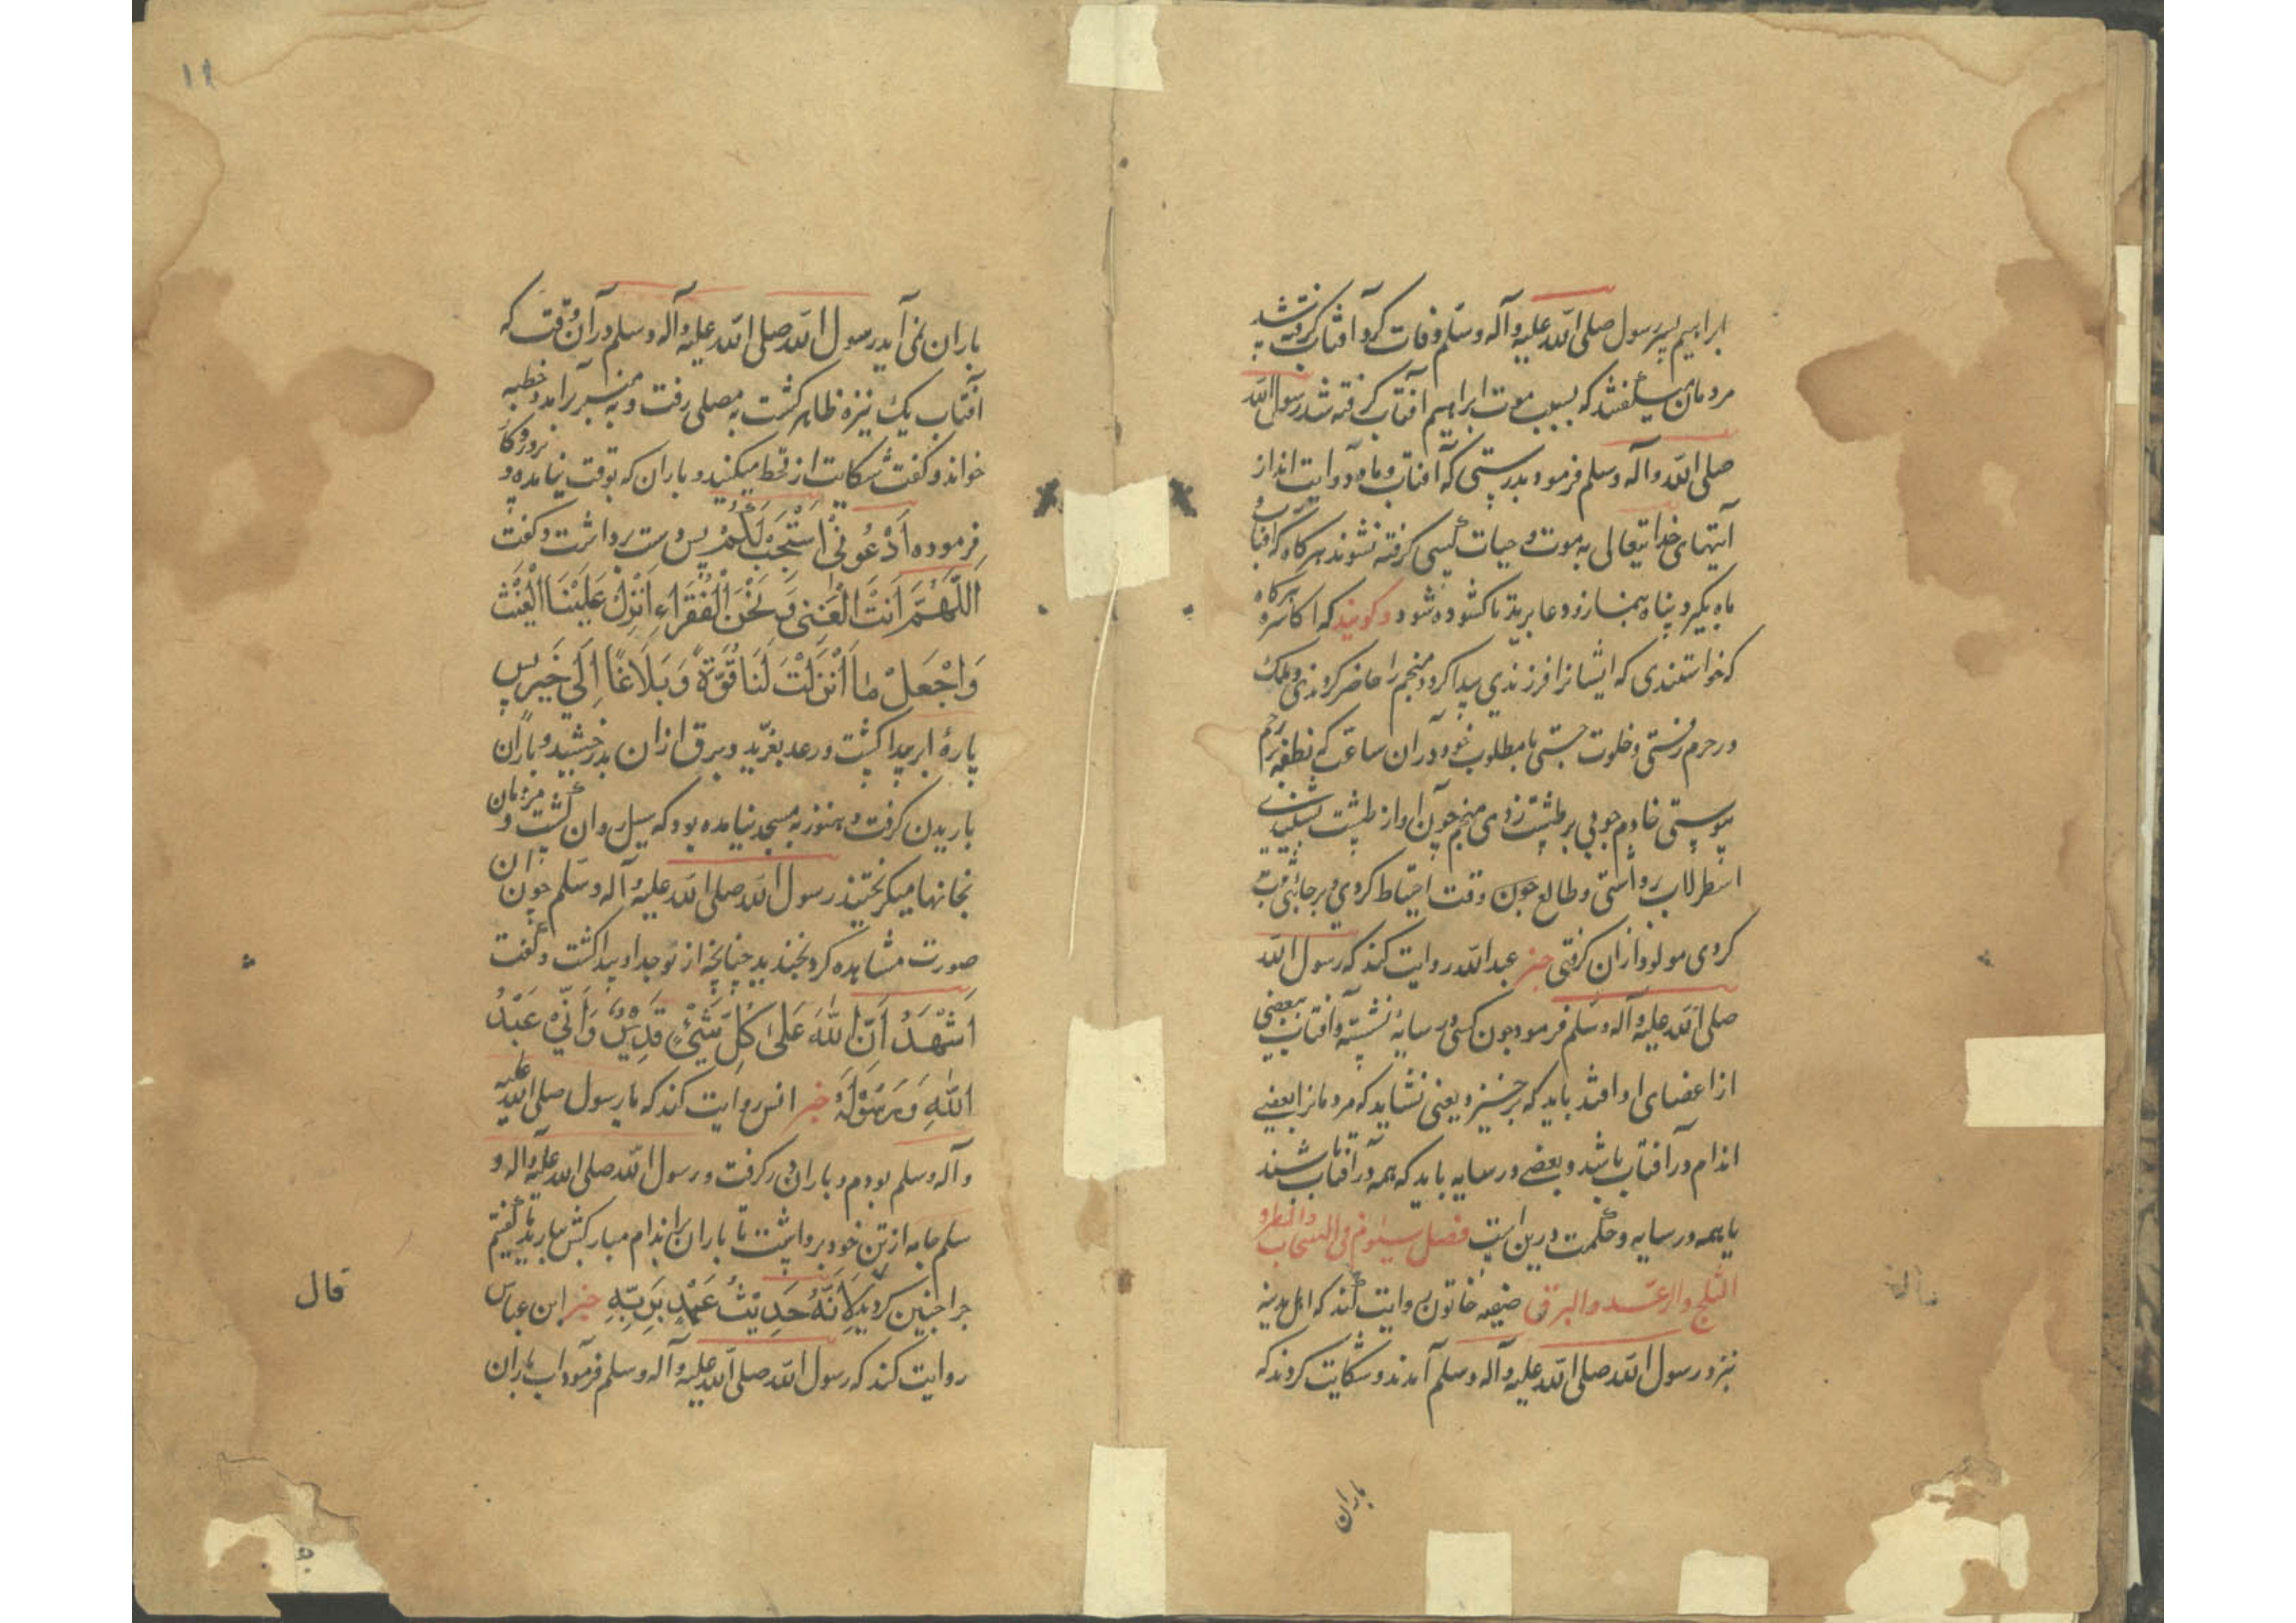 ابراهیم پسر رسول صلی الله علیه وآله وسلم وفات کرد آفتاب گرفته شد
مردمان میگفتند که بسبب موت ابراهیم آفتاب گرفته شد رسول الله
صلی الله وآله وسلم فرمود بدرستی که آفتاب وماه دو آیت اند از
آیتهای خدایتعالی به موت و حیات کسی گرفته نشوند هرگاه که آفتاب و
ماه بگیرد پناه بنماز و دعا برید تا کشوده شود و گویند که اکاسره هرگاه
که خواستندی که ایشانرا فرزندی پیدا کردد منجم را حاضر کردندی و ملک
در حرم رفتی و خلوت جستی با مطلوب خود و در آن ساعت که نطفه برحم
پیوستی خادم چوبی بر طشت زدی منجم چون آواز طشت بشنیدی
اسطرلاب برداشتی و طالع چون وقت احتیاط کردی و برجا
کردی مولود از آن گرفتی خبر عبدالله روایت کند که رسول الله
صلی الله علیه وآله وسلم فرمود چون کسی در سایه نشسته و آفتاب ببعضی
از اعضای او افتد باید که برخیزد یعنی نشاید که مردمانرا بعضی
اندام در آفتاب باشد و بعضی در سایه باید که همه در آفتاب باشند
یا همه در سایه و حکمت درین است فصل سیوم فی السحاب والمطر و
الثلج والرعد والبرق خاتون روایت کند که اهل مدینه
نزد رسول الله صلی الله علیه وآله وسلم آمدند و شکایت کردند که
باران
۱۱
باران نمی آید رسول الله صلی الله علیه وآله وسلم در آن وقت که
آفتاب یک نیزه ظاهر گشت به مصلی رفت و به منبر برآمد و خطبه
خواند و گفت شکایت از قحط میکنید و باران که بوقت نیامده و
فرموده اَدْعُونی اَسْتَجِبْ لَکُمْ پس دست برداشت و گفت
اَللّهُمَّ اَنْتَ الْغَنی وَنَحْنُ الْفُقَراءِ اَنْزِلْ عَلَیْنَا الْغَیْثَ
وَاجْعَلْ ما اَنْزَلْتَ لَنا قُوَّةً وَبَلَاغاً اِلی خَیر پس
پارهٔ ابر پیدا گشت و رعد بغرید و برق از آن بدرخشید و باران
باریدن گرفت و هنوز به مسجد نیامده بود که سیل روان گشت و مردمان
بخانها میگریختند رسول الله صلی الله علیه وآله وسلم چون آن
صورت مشاهده کرد بخندید چنانچه از نواجذ او پیدا گشت و گفت
اَشْهَدُ اَنَّ اللهَ عَلی کُلِّ شَیْءٍ قَدِیرٌ وَاَنّی عَبْدُ
اللهِ وَرَسُولُهُ خبر انس روایت کند که با رسول صلی الله علیه
وآله وسلم بودم و باران در گرفت و رسول الله صلی الله علیه وآله و
سلم جامه از تن خود برداشت تا باران بر اندام مبارکش ببارید تا گفتیم
چرا چنین کردید لِاَنَّهُ حَدِیثُ عَهْدٍ بِرَبِّهِ خبر ابن عباس
روایت کند که رسول الله صلی الله علیه وآله وسلم فرمود آب باران
قال